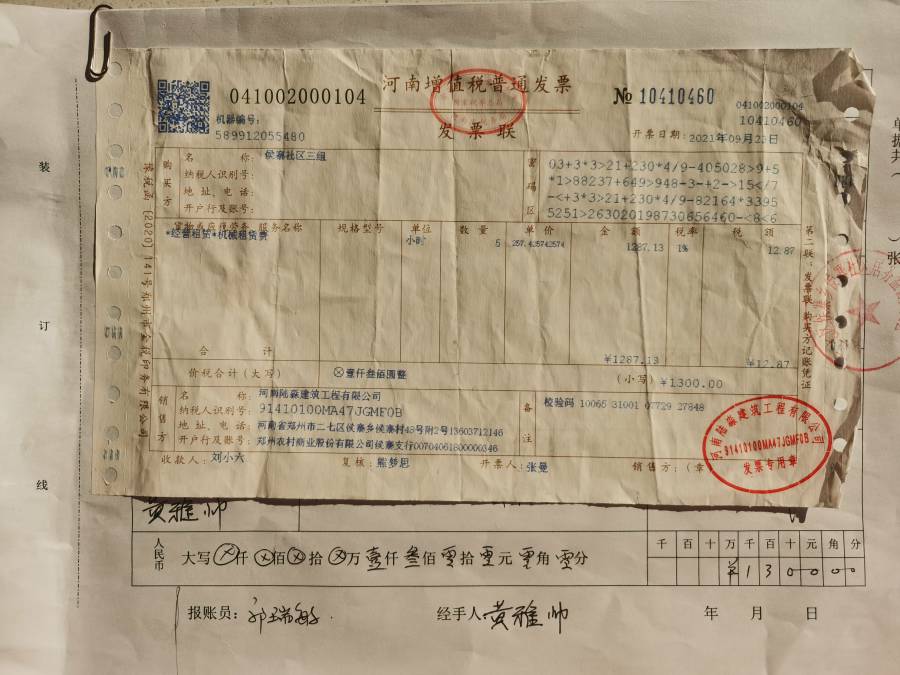 河南增值税普通发票
041002000104
№ 10410460
041002000104
10410460
机器编号:
589912055480
发票联
开票日期: 2021年09月23日
购买方
名 称: 侯寨社区三组
纳税人识别号:
地 址、电 话:
开户行及账号:
密码区
03+3*3>21+230*4/9-405028>9+5
*1>88237+649>948-3-+2->15</7
-<+3*3>21+230*4/9-82164*3395
5251>263020198730656460-<8<6
货物或应税劳务、服务名称 规格型号 单位 数 量 单 价 金 额 税率 税 额
*经营租赁*机械租赁费 小时 5 257.425742574 1287.13 1% 12.87
合 计 ¥1287.13 ¥12.87
价税合计(大写) ⊗壹仟叁佰圆整 (小写) ¥1300.00
销售方
名 称: 河南陆淼建筑工程有限公司
纳税人识别号: 91410100MA47JGMF0B
地 址、电 话: 河南省郑州市二七区侯寨乡侯寨村48号附2号13603712146
开户行及账号: 郑州农村商业股份有限公司侯寨支行00704061800000346
备注
校验码 10065 31001 07729 27848
收款人: 刘小六 复核: 熊梦思 开票人: 张曼 销售方:(章
河南陆淼建筑工程有限公司
91410100MA47JGMF0B
发票专用章
第二联:发票联 购买方记账凭证
装
订
线
黄雅帅
人民币
大写 ⊗仟 ⊗佰 ⊗拾 ⊗万 壹仟 叁佰 零拾 零元 零角 零分
千 百 十 万 千 百 十 元 角 分
¥ 1 3 0 0 0 0
报账员: 郭瑞敏 经手人 黄雅帅 年 月 日
单据共
张